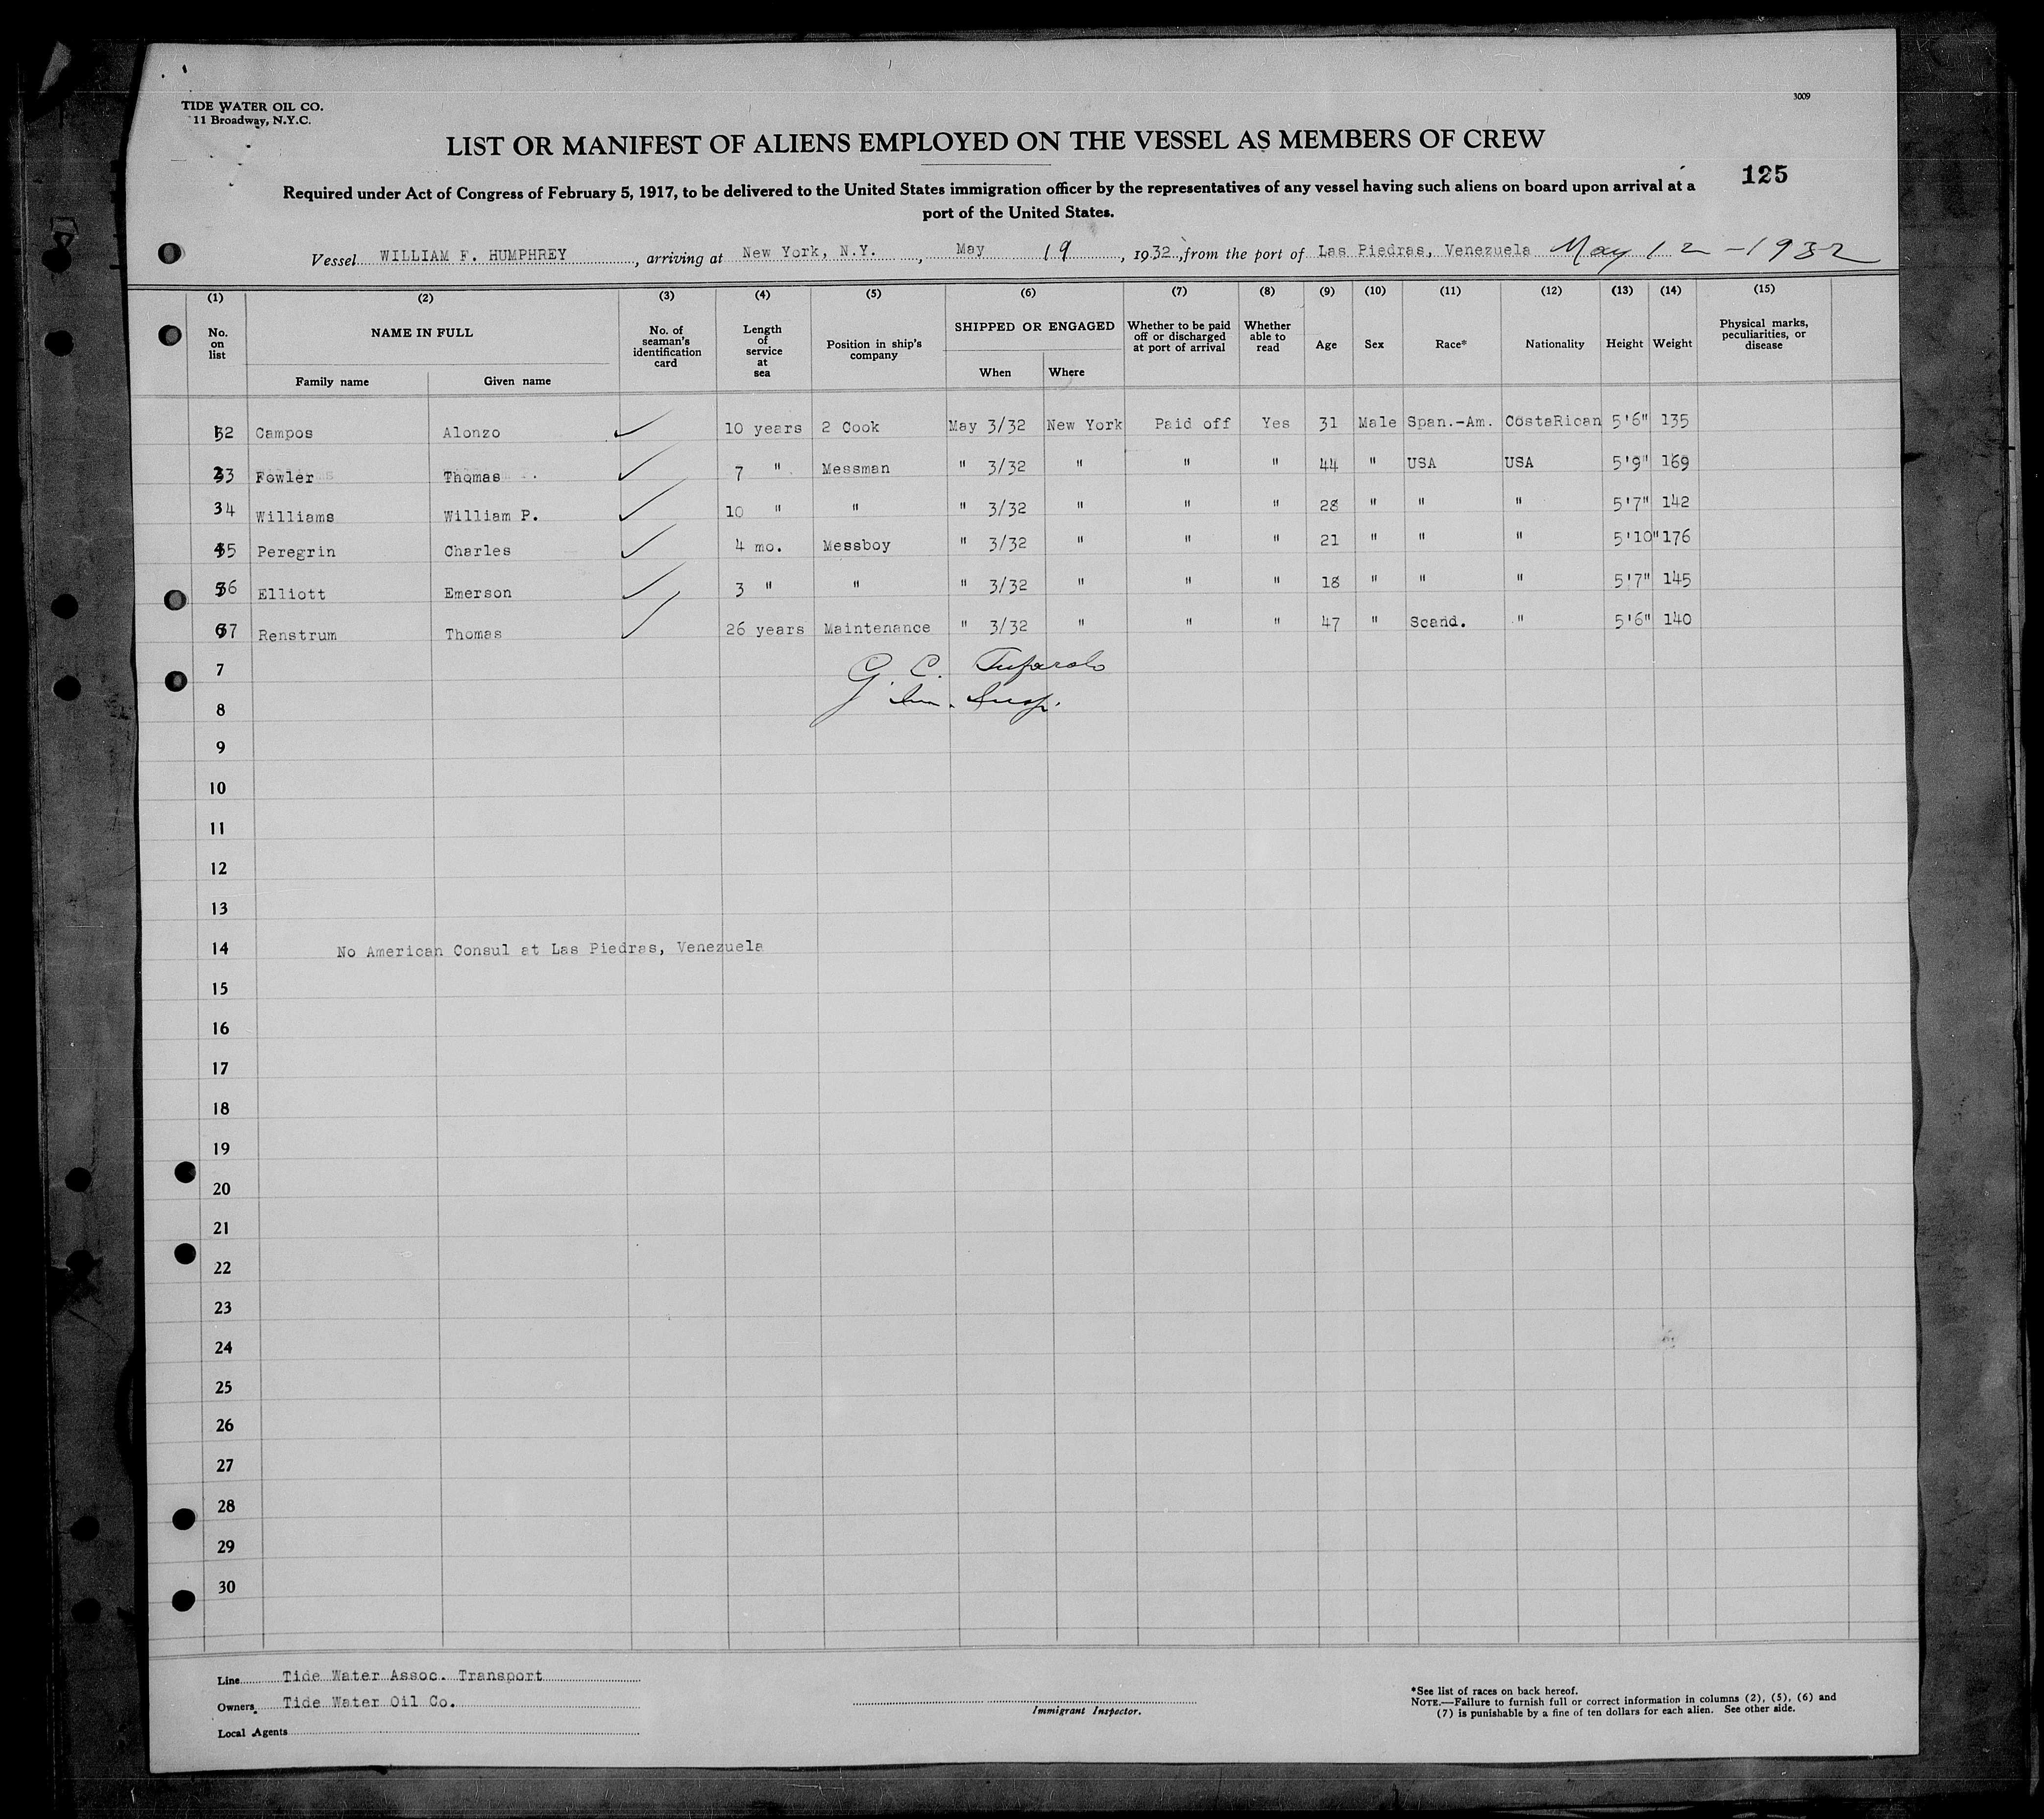 TIDE WATER OIL CO.
11 Broadway, N.Y.C.
3009
LIST OR MANIFEST OF ALIENS EMPLOYED ON THE VESSEL AS MEMBERS OF CREW
125
Required under Act of Congress of February 5, 1917, to be delivered to the United States immigration officer by the representatives of any vessel having such aliens on board upon arrival at a
port of the United States.
Vessel WILLIAM F. HUMPHREY, arriving at New York, N.Y., May 19, 1932, from the port of Las Piedras, Venezuela May 12-1932
(1) (2) (3) (4) (5) (6) (7) (8) (9) (10) (11) (12) (13) (14) (15)
No. on list NAME IN FULL Family name Given name No. of seaman's identification card Length of service at sea Position in ship's company SHIPPED OR ENGAGED When Where Whether to be paid off or discharged at port of arrival Whether able to read Age Sex Race* Nationality Height Weight Physical marks, peculiarities, or disease
32 Campos Alonzo ✓ 10 years 2 Cook May 3/32 New York Paid off Yes 31 Male Span.-Am. CostaRican 5'6" 135
33 Fowler Thomas ✓ 7 " Messman " 3/32 " " " 44 " USA USA 5'9" 169
34 Williams William P. ✓ 10 " " " 3/32 " " " 28 " " " 5'7" 142
35 Peregrin Charles ✓ 4 mo. Messboy " 3/32 " " " 21 " " " 5'10" 176
36 Elliott Emerson ✓ 3 " " " 3/32 " " " 18 " " " 5'7" 145
37 Renstrum Thomas ✓ 26 years Maintenance " 3/32 " " " 47 " Scand. " 5'6" 140
7 G. C.
8 Imm. Insp.
9
10
11
12
13
14 No American Consul at Las Piedras, Venezuela
15
16
17
18
19
20
21
22
23
24
25
26
27
28
29
30
Line Tide Water Assoc. Transport
Owners Tide Water Oil Co.
Local Agents
Immigrant Inspector.
*See list of races on back hereof.
NOTE.—Failure to furnish full or correct information in columns (2), (5), (6) and
(7) is punishable by a fine of ten dollars for each alien. See other side.